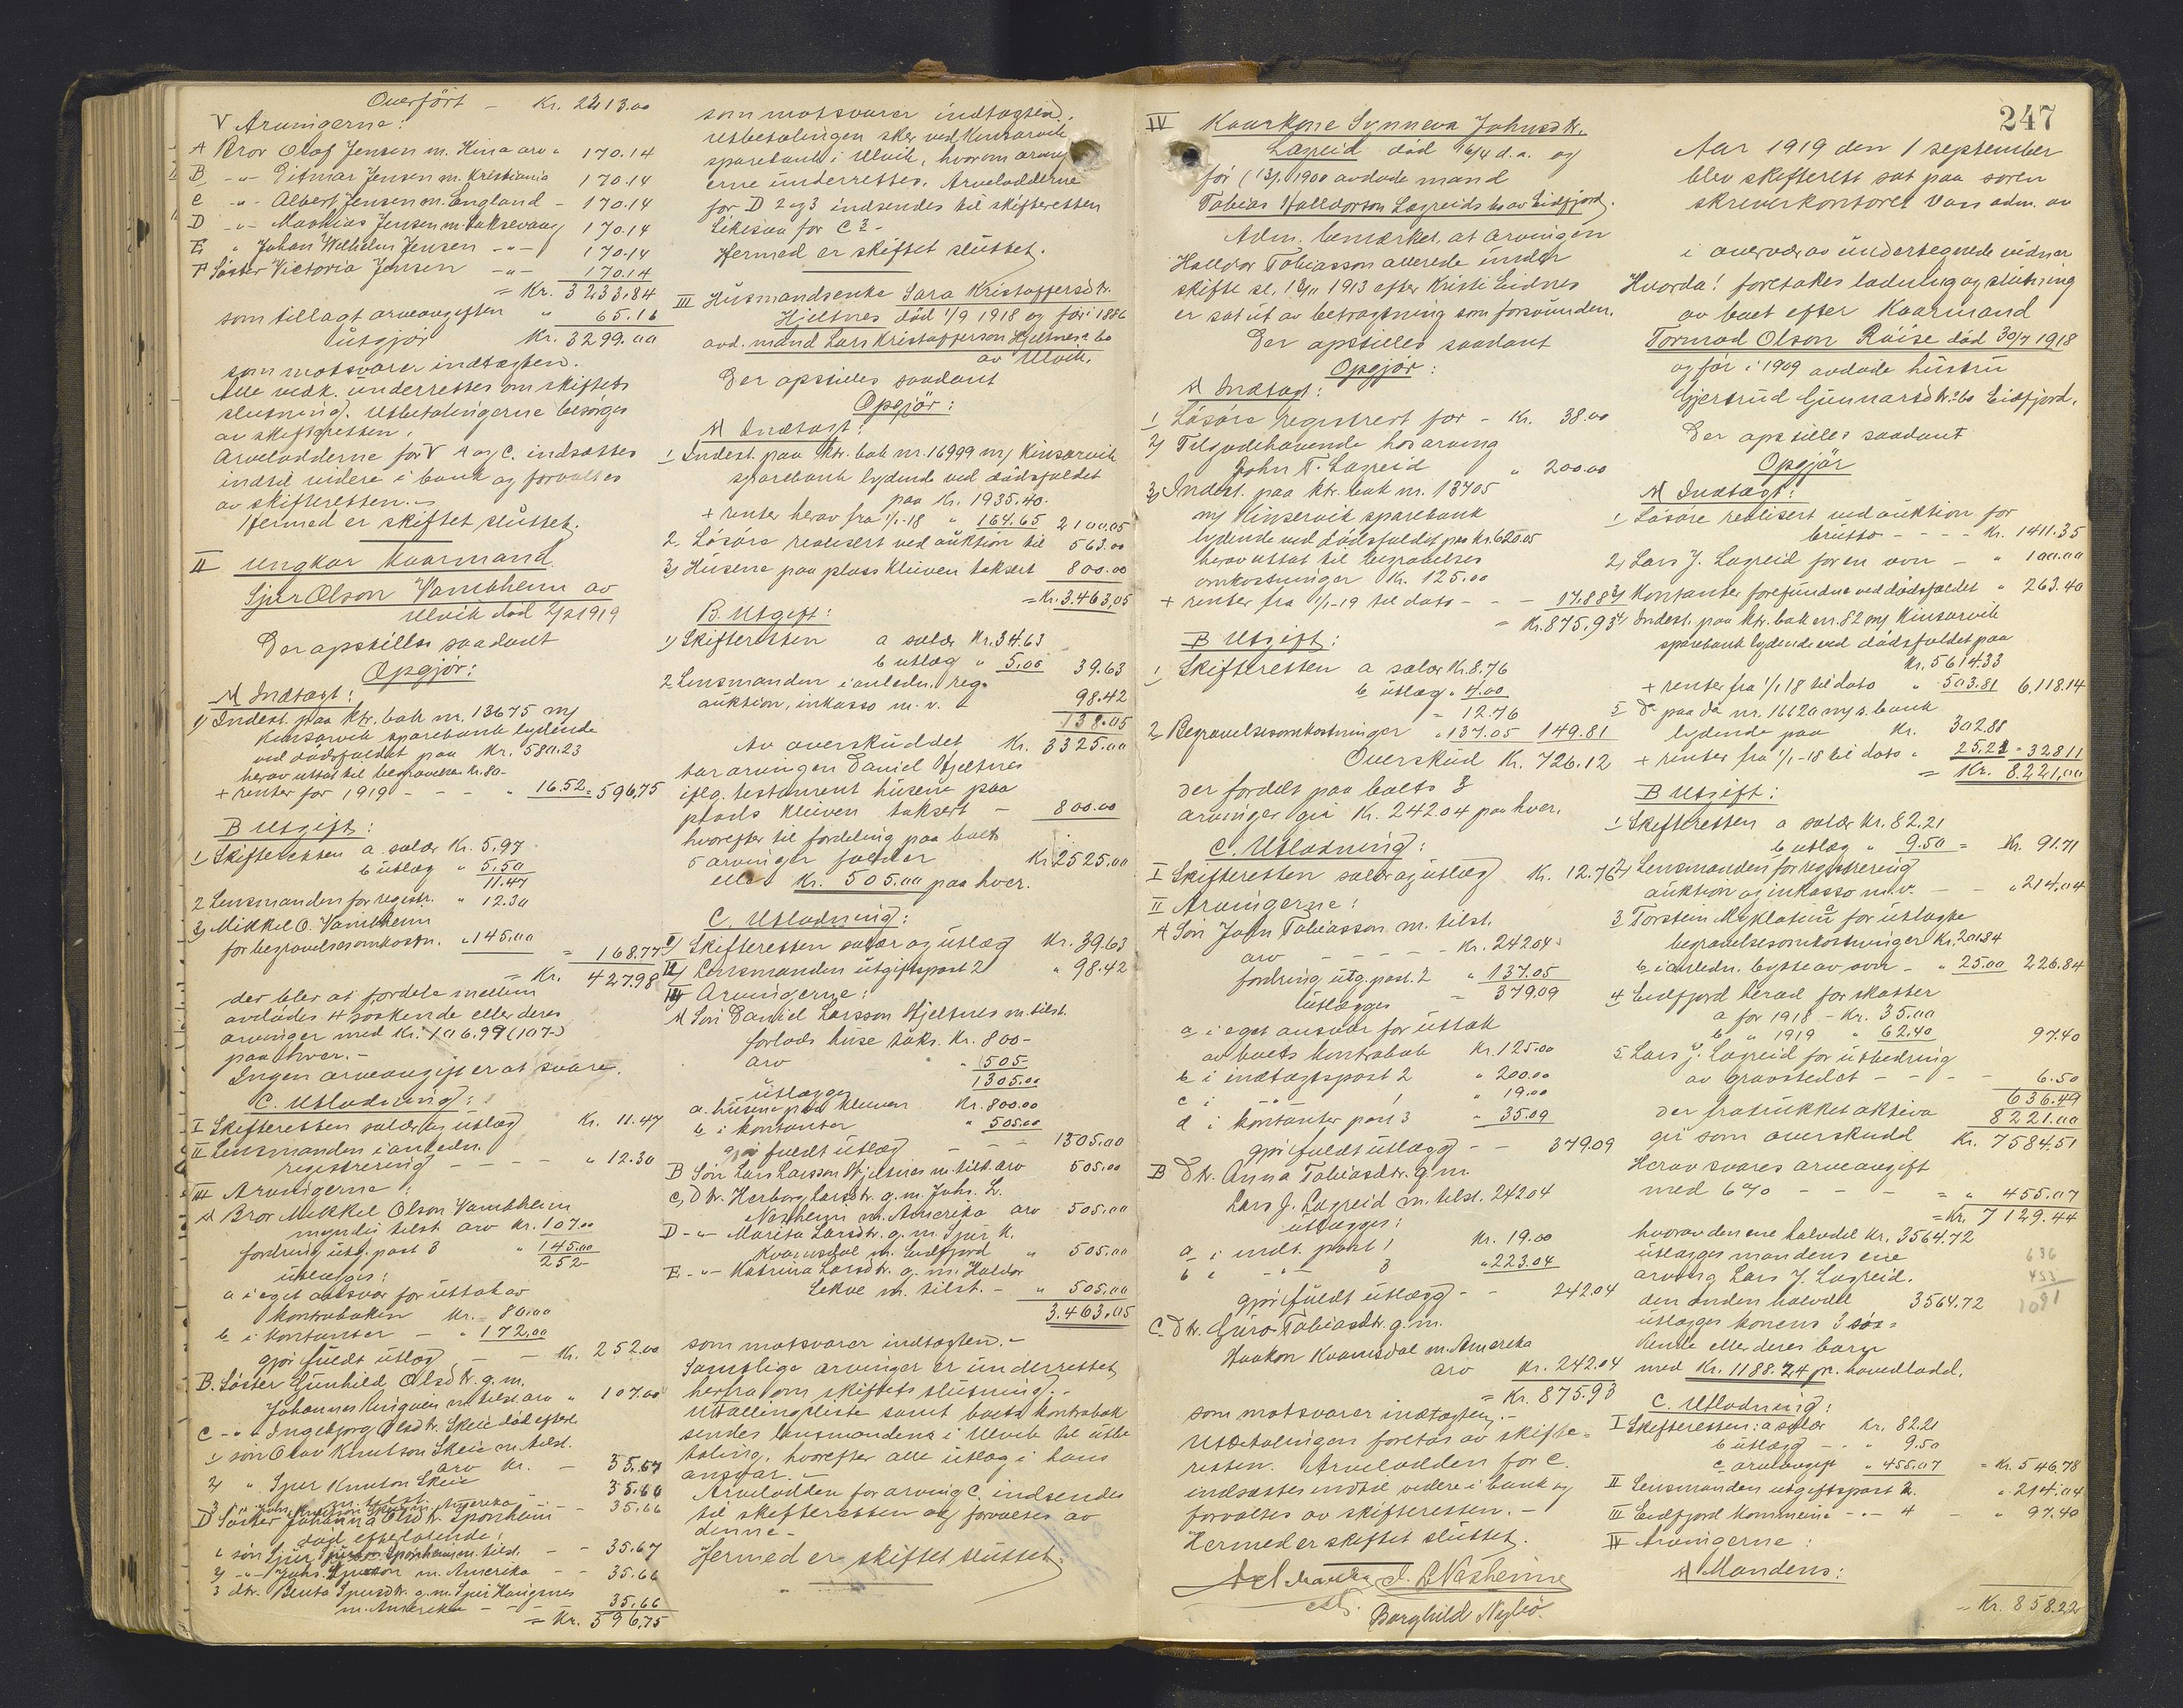 Overført - Kr. 2213.00
V Arvingerne:
A Bror Olaf Jensen m. Kina arv " 170.14
B -"- Eitmar Jensen m. Kristiania 170.14
C -"- Albert Jensen m. England - 170.14
D -"- Mathias Jensen m. Laksevaag 170.14
E " Johan Wilhelm Jensen -"- 170.14
F Søster Victoria Jensen -"- 170.14
= Kr. 3233.84
som tillagt arveavgiften " 65.16
utgjør Kr. 3299.00
som motsvarer indtægten.
Alle vedk. underrettes om skiftets
slutning. Utbetalingerne besørges
av skifteretten.
Arvelodderne for V A og C. indsættes
indtil videre i bank og forvaltes
av skifteretten.-
Hermed er skiftet sluttet.
II Ungkar kaarmand
Sjur Olson Vambheim av
Ulvik død 2/2 1919
Der opstilles saadant
Opgjør:
A Indtægt:
1) Indest. paa ktr. bok nr. 13675 m/
Kinsarvik sparebank lydende
ved dødsfaldet paa Kr. 580.23
herav uttat til begravelse kr. 80-
+ renter for 1919 - - - " 16.52 = 596.75
B Utgift:
1 Skifteretten a salær Kr. 5.97
b utlæg " 5.50
11.47
2 Lensmanden for registr. " 12.30
3) Mikkel O. Vambheim
for begravelsesomkostn. " 145.00 = 168.77
= Kr. 427.98
der blev at fordele mellem
avdødes 4 søskende eller deres
arvinger med Kr. 106.99 (107-)
paa hver.-
Ingen arveavgift er at svare.
C. Utlodning:
I Skifteretten salær og utlæg Kr. 11.47
II Lensmanden i anledn.
registrering - - - - " 12.30
III Arvingerne:
A Bror Mikkel Olson Vambheim
myndig tilst. arv Kr. 107.00
fordring utg. post 3 " 145.00
252-
utlægges:
a i eget ansvar for uttak av
kontraboken Kr. 80.00
b i kontanter - " 172.00
gjør fuldt utlæg - - Kr. 252.00
B. Søster Gunhild Olsdtr. g. m.
Johannes Ringøen m. tilst arv " 107.00
C -"- Ingebjørg Olsdtr. Skeie død efterl.
1/ søn Olav Knutson Skeie m. tilst.
arv Kr. - 35.67
2/ " Sjur Knutson Skeie
m. tilst. 35.66
3 " Joh. Knutson Skeie m. Amerika - 35.66
D Søster Johanna Olsdtr. Sponheim
død efterlatende:
1 søn Sjur Sjurson Sponheim m. tilst. - - 35.67
2) -"- Johs. Sjurson m. Amerika - - 35.66
3 dtr. Brita Sjursdtr. g. m. Sjur Haugsnes
m. Amerika - - - 35.66
= Kr. 596.75
som motsvarer indtægten.
Utbetalingen sker ved Kinsarvik
sparebank i Ulvik, hvorom arving
erne underrettes. Arvelodderne
for D 2 og 3 indsendes til skifteretten
likesaa for C 3-
Hermed er skiftet sluttet.
III Husmandsenke Sara Kristoffersdtr.
Hjeltnes død 1/9 1918 og før i 1886
avd. mand Lars Kristofferson Hjeltnes's bo
av Ulvik.
Der opstilles saadant
Opgjør:
A Indtægt:
1 Indest. paa ktr. bok nr. 16999 m/ Kinsarvik
sparebank lydende ved dødsfaldet
paa Kr. 1935.40.
+ renter herav fra 1/1-18 " 164.65 2100.05
2. Løsøre realisert ved auktion til 563.00
3) Husene paa plass Kleiven taksert 800.00
= Kr. 3.463,05
B. Utgift:
1) Skifteretten a salær Kr. 34.63
b utlæg " 5.00 39.63
2 Lensmanden i anledn. reg.
auktion, inkasso m. v. - 98.42
138.05
Av overskuddet Kr. 3325.00
tar arvingen Daniel Hjeltnes
iflg. testament husene paa
plads Kleiven taksert - 800.00
hvorefter til fordeling paa boets
5 arvinger falder Kr. 2525.00
eller Kr. 505.00 paa hver.
C. Utlodning:
I/ Skifteretten salær og utlæg Kr. 39.63
II/ Lensmanden utgiftspost 2 " 98.42
III Arvingerne:
A Søn Daniel Larsson Hjeltnes m. tilst.
forlods huse taks. Kr. 800-
arv " 505-
1305.00
utlægges
a. husene paa Kleiven Kr. 800.00
b i kontanter " 505.00
gjør fuldt utlæg - - 1305.00
B Søn Lars Larsson Hjeltnes m. tilst. arv 505.00
C, Dtr. Herborg Larsdtr. g. m. Johs. L.
Nesheim m. Amerika arv 505.00
D -"- Marita Larsdtr. g. m. Sjur K.
Kvamsdal m. Eidfjord " 505.00
E -"- Katrina Larsdtr. g. m. Haldor
Lekve m. tilst. - " 505.00
3.463,05
som motsvarer indtægten.-
Samtlige arvinger er underrettet
herfra om skiftets slutning.-
Utfallingsliste samt boets kontrabok
sendes lensmanden i Ulvik til utbe
taling, hvorefter alle utlæg i hans
ansvar.-
Arvelodden for arving C. indsendes
til skifteretten og forvaltes av
denne-
Hermed er skiftet sluttet.
247
IV Kaarkone Synneva Johnsdtr.
Lægreid død 16/4 d. a. og
før (13/1 1900 avdøde mand
Tobias Halldorson Lægreids bo av Eidfjord.
Adm. bemerket, at arvingen
Halldor Tobiasson allerede under
skifte sl. 18/11 1913 efter Kristi Eidnes
er sat ut av betragtning som forsvunden.
Der opstilles saadant
Opgjør:
A Indtægt:
1 Løsøre registrert for - Kr. 38.00
2) Tilgodehavende hos arving
John T. Lægreid " 200.00
3) Indest. paa ktr. bok nr. 13705
m/ Kinservik sparebank
lydende ved dødsfaldet paa Kr. 620.05
herav uttat til begravelses
omkostninger Kr. 125.00
+ renter fra 1/1-19 til dato - - - 17.88
= Kr. 875.93
B Utgift:
1 Skifteretten a salær Kr. 8.76
b utlæg " 4.00
= 12.76
2 Begravelsesomkostninger " 137.05 149.81
Overskud Kr. 726.12
der fordelt paa boets 3
arvinger gir Kr. 242.04 paa hver.
C. Utlodning:
I Skifteretten salær og utlæg Kr. 12.76
II Arvingerne:
A Søn John Tobiasson m. tilst.
arv - - - - - Kr. 242.04
fordring utg. post. 2 " 137.05
utlægges = 379.09
a i eget ansvar for uttak
av boets kontrabok Kr. 125.00
b i indtægtspost 2 " 200.00
c i -"- 1 " 19.00
d i kontanter post 3 " 35.09
gjør fuldt utlægg - - 379.09
B Dtr. Anna Tobiasdtr. g. m.
Lars J. Lægreid m. tilst. 242.04
utlægges:
a i indt. post 1 Kr. 19.00
b i -"- 3 " 223.04
gjør fuldt utlægg - - 242.04
C. Dtr. Guro Tobiasdtr. g. m.
Haakon Kvamsdal m. Amerika
arv Kr. 242.04
= Kr. 875.93
som motsvarer indtægten.-
Utbetalingen foretas av skifte=
retten. Arvelodden for C.
indsættes indtil videre i bank og
forvaltes av skifteretten.-
Hermed er skiftet sluttet.
Borghild Nybø.
Aar 1919 den 1 september
blev skifterett sat paa soren
skriverkontoret Voss adm. av
i overvær av undertegnede vidner
Hvorda! foretokes lodning og slutning
av boet efter Kaarmand
Tormod Olson Røise død 30/7 1918
og før i 1909 avdøde hustru
Gjertrud Gunnarsdtr.s bo Eidfjord.
Der opstilles saadant
Opgjør
A Indtægt:
1 Løsøre realisert ved auktion for
brutto - - - - Kr. 1411.35
2, Lars J. Lægreid for en ovn - " 100.00
3 Kontanter forefundne ved dødsfaldet " 263.40
4 Indest. paa ktr. bok nr. 82 m/ Kinsarvik
sparebank lydende ved dødsfaldet paa
Kr. 5614.33
+ renter fra 1/1 18 til dato " 503.81 6,118.14
5 Do paa do nr. 16620 m/ s. bank
lydende paa Kr. 302.88
+ renter fra 1/1-18 til dato " 25.23 = 328.11
= Kr. 8.221,00
B Utgift:
1 Skifteretten a salær Kr. 82.21
b utlæg " 9.50 = Kr. 91.71
2, Lensmanden for registrering
auktion og inkasso m. v. - - " 214.04
3 Torstein Myklatun a for utlagte
begravelsesomkostninger Kr. 201.84
b i anledn. bytte av ovn - " 25.00 226.84
4 Eidfjord herad for skatter
a for 1918 - Kr. 35.00
b " 1919 " 62.40 97.40
5 Lars J. Lægreid for utbedring
av gravstedet - - - - 6.50
636.49
der fratrukket aktiva 8221.00
gir som overskudd Kr. 7584.51
Herav svares arveavgift
med 6% - - - = " 455.07
= Kr. 7129.44
hvorav den ene halvdel Kr. 3564.72
utlægges mandens ene
arving Lars J. Lægreid.
den anden halvdel 3564.72
utlægges konens 3 søs=
kende eller deres barn
med Kr. 1188.24 pr. hovedlodd.
636
455
1091
C. Utlodning:
I Skifteretten: a salær Kr. 82.21
b utlæg - " 9.50
c arveavgift " 455.07 = Kr. 546.78
II Lensmanden utgiftspost 2. " 214.04
III Eidfjord kommune -"- 4 - " 97.40
IV Arvingerne:
A Mandens:
= Kr. 858.22